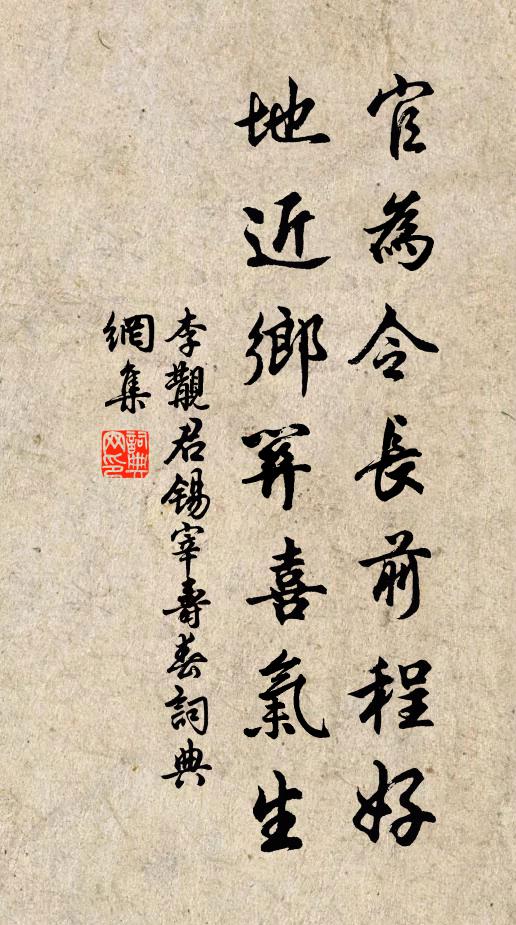 官為令長前程好
地近鄉關喜氣生
李覯君錫宰壽春詞典
網集
詞典
网印